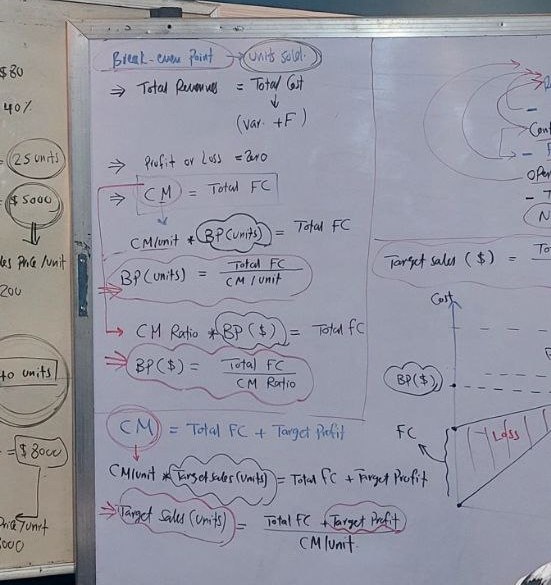 $80
40%
= 25 units
= $5000
Price/unit
200
40 units
= $8000
Price/unit
Break-even Point → units sold.
⇒ Total Revenues = Total Cost
(var. + F)
⇒ Profit or Loss = Zero
⇒ CM = Total FC
CM/unit * BP(units) = Total FC
BP(units) = Total FC
CM/unit
CM Ratio * BP($) = Total FC
⇒ BP($) = Total FC
CM Ratio
CM = Total FC + Target Profit
CM/unit * Target sales (units) = Total FC + Target Profit
⇒ Target Sales (units) = Total FC + Target Profit
CM/unit
Target sales ($) =
Cost
BP($)
FC
Loss